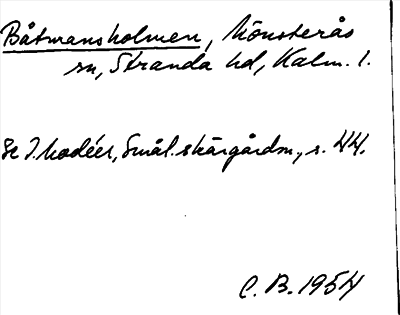 Båtmansholmen, Mönsterås
sn, Stranda hd, Kalm. l.
Se I. Modéer, Smål. skärgårdsn., s. 44.
C. B. 1954